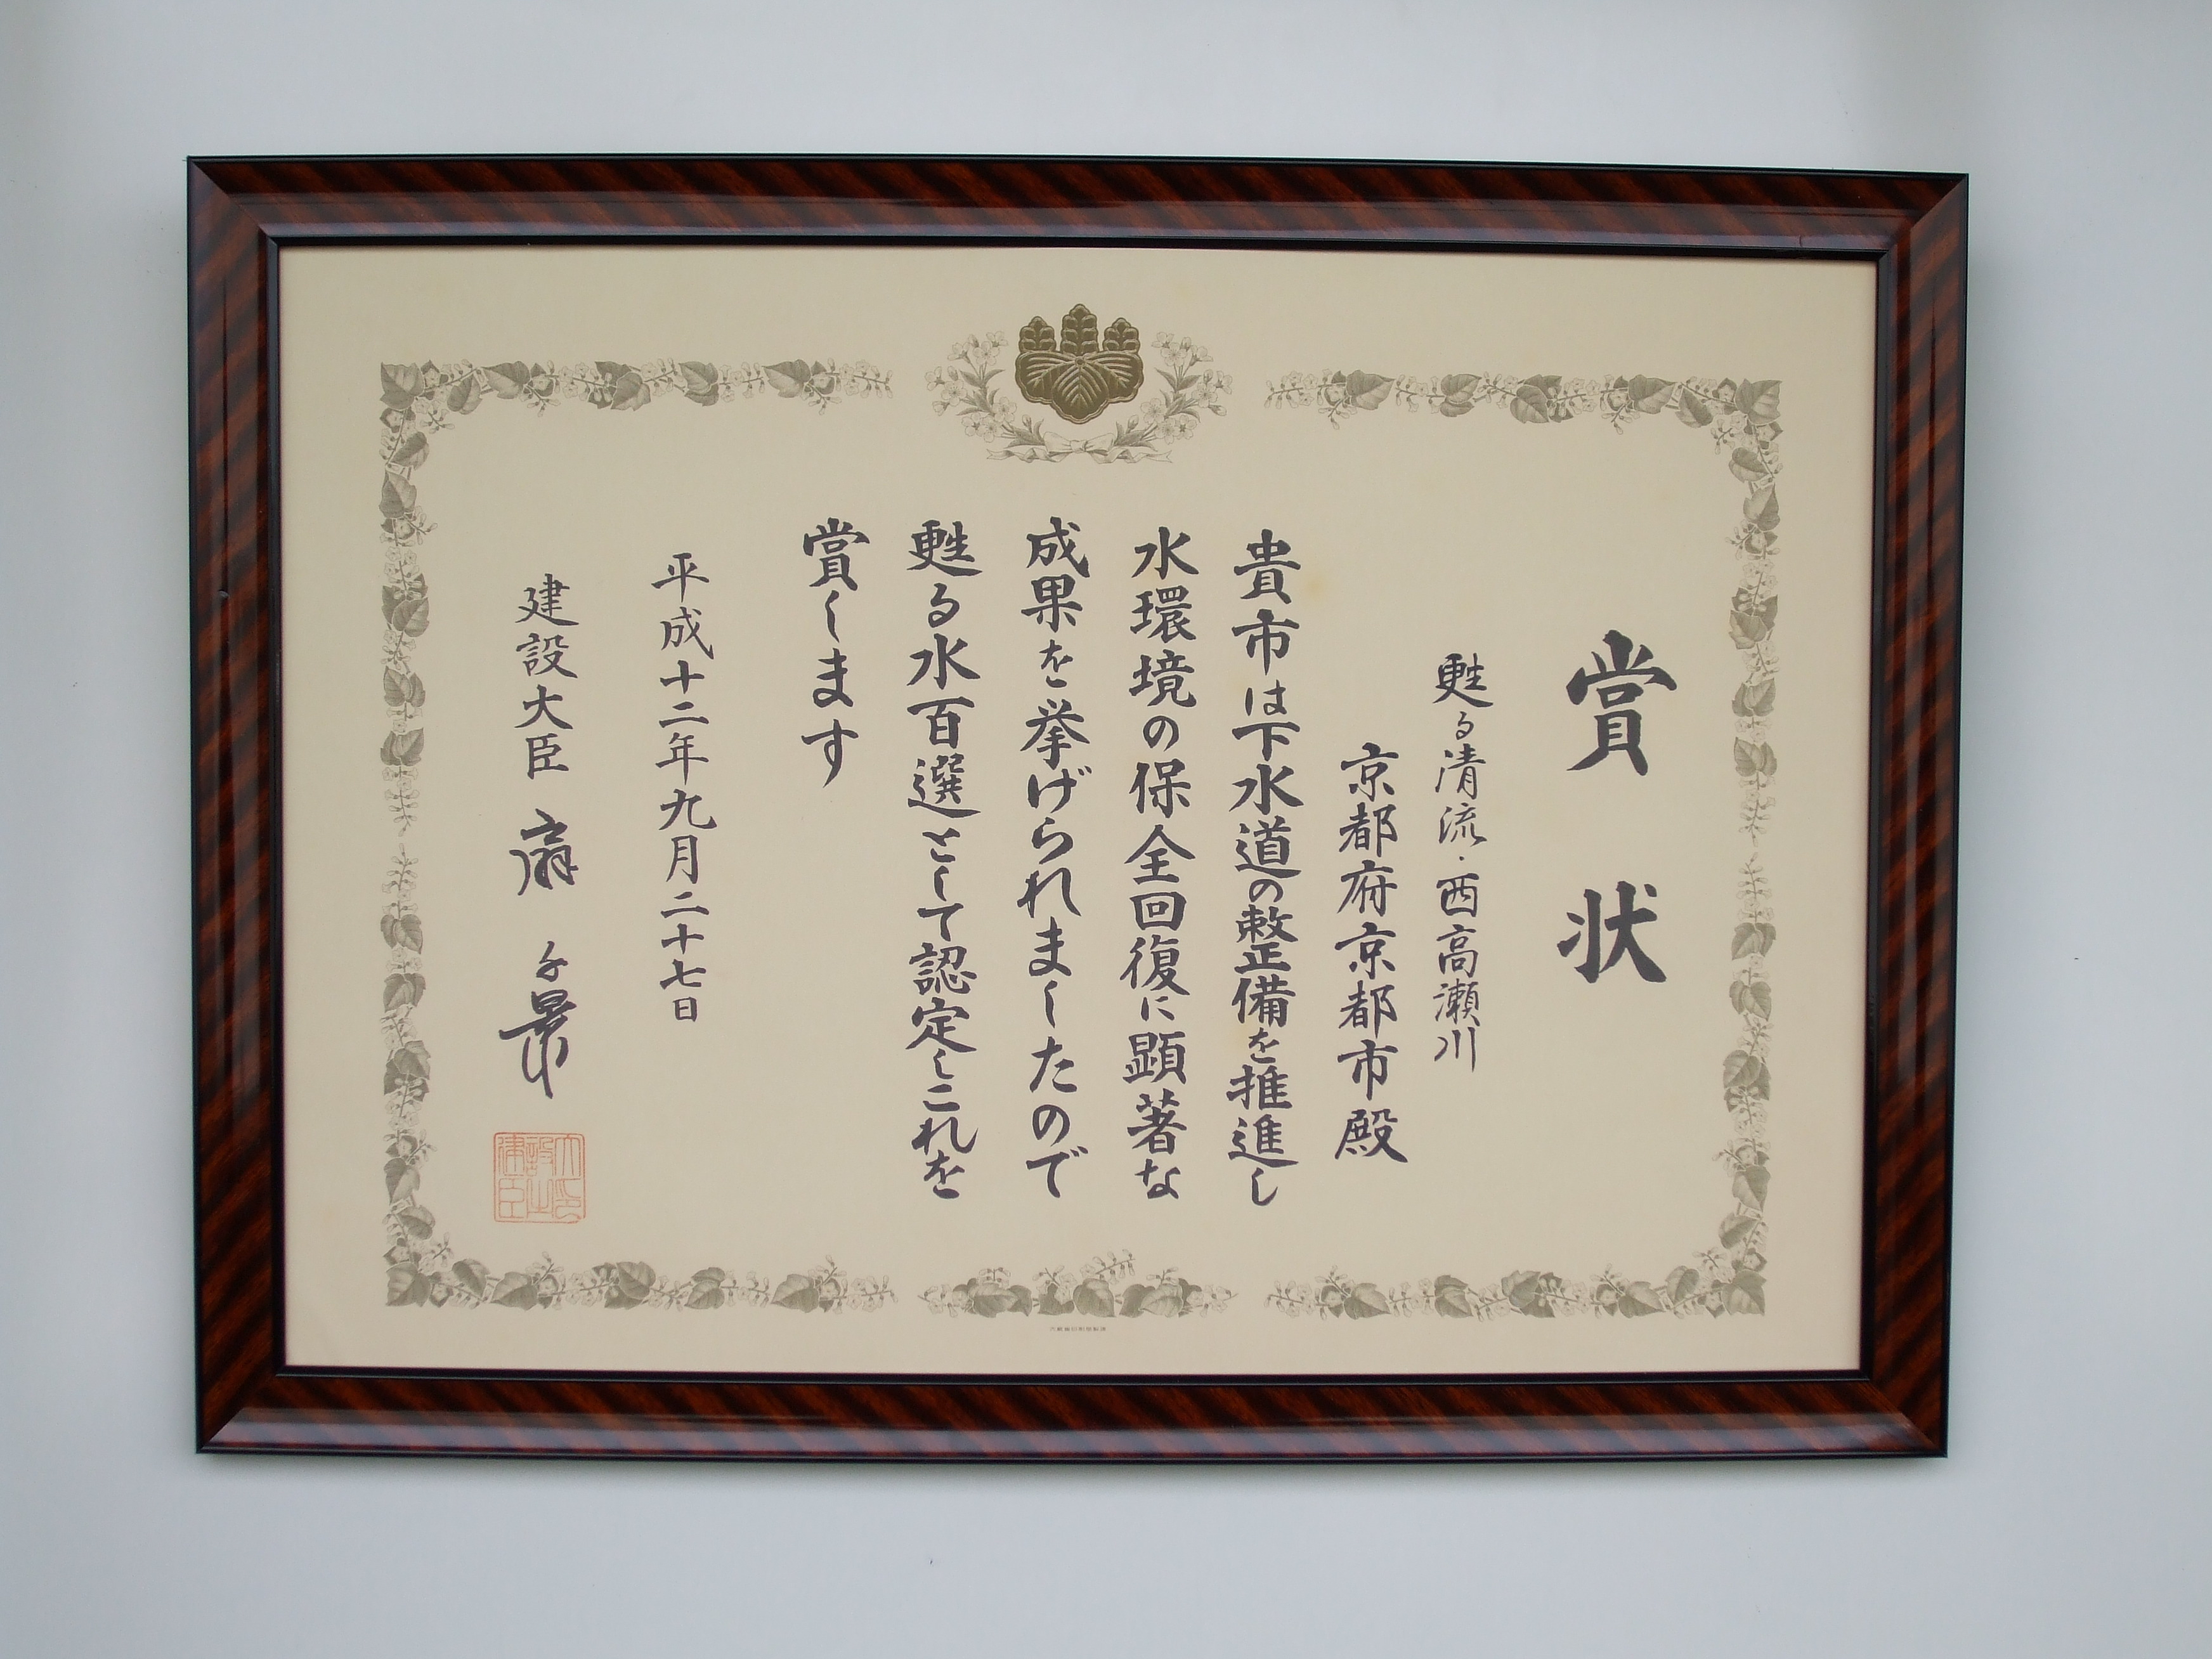 賞状
甦る清流・西高瀬川
京都府京都市殿
貴市は下水道の整備を推進し
水環境の保全回復に顕著な
成果を挙げられましたので
甦る水百選として認定しこれを
賞します
平成十二年九月二十七日
建設大臣 扇 千景
建設大臣之印